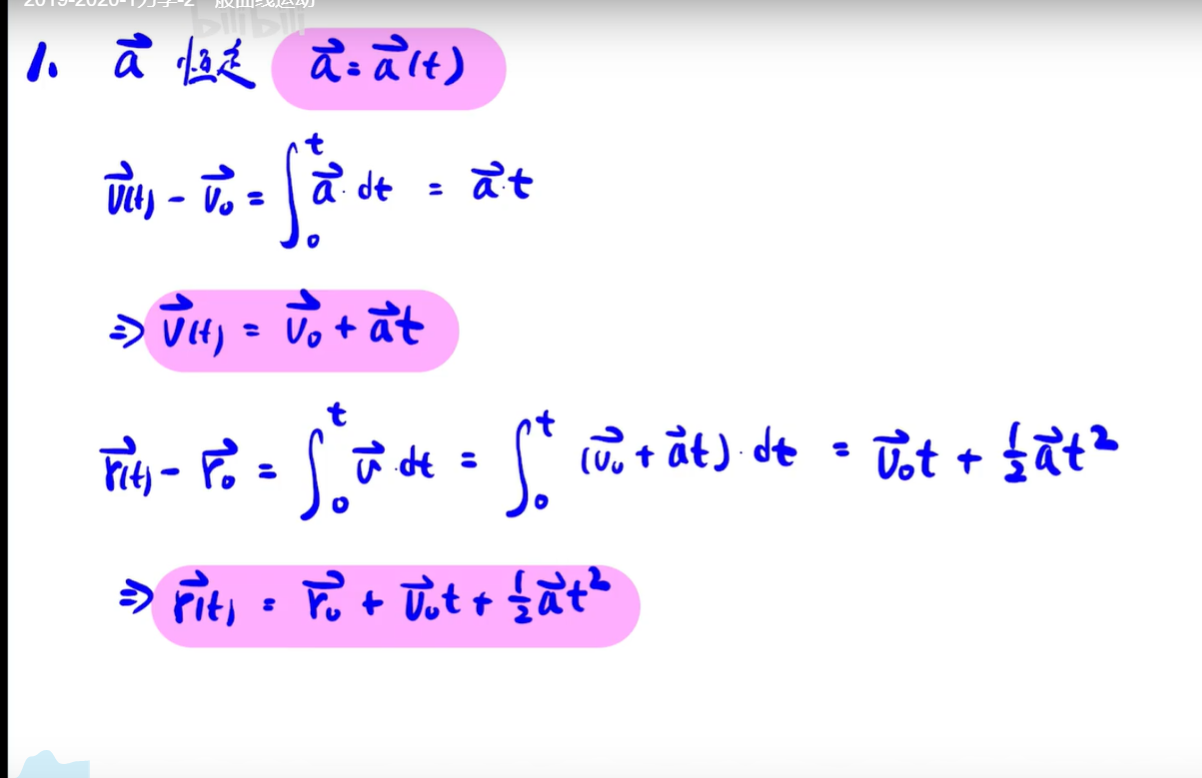 2019-2020-1力学-2一般曲线运动
bilibili
1. a⃗ 恒定 a⃗ = a⃗(t)
v⃗(t) - v⃗₀ = ∫₀ᵗ a⃗·dt = a⃗·t
⇒ v⃗(t) = v⃗₀ + a⃗t
r⃗(t) - r⃗₀ = ∫₀ᵗ v⃗·dt = ∫₀ᵗ (v⃗₀ + a⃗t)·dt = v⃗₀t + ½a⃗t²
⇒ r⃗(t) = r⃗₀ + v⃗₀t + ½a⃗t²